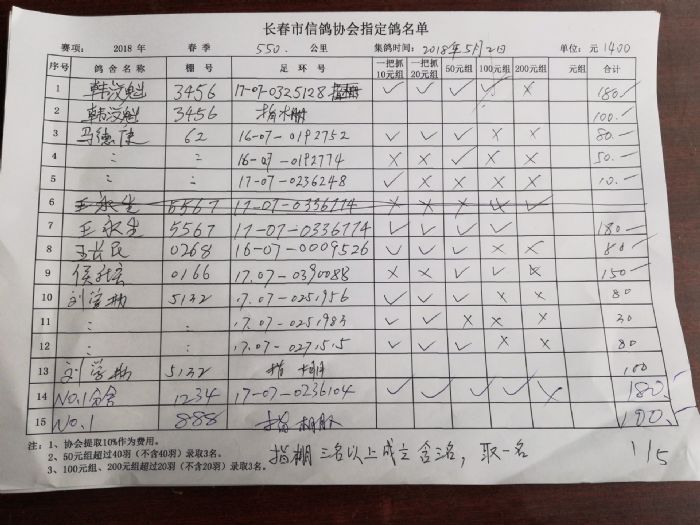 长春市信鸽协会指定鸽名单
赛项： 2018 年 春季 550. 公里 集鸽时间：2018年5月2日 单位：元 1400
序号 鸽舍名称 棚号 足环号 一把抓10元组 一把抓20元组 50元组 100元组 200元组 元组 合计
1 韩汉魁 3456 17-07-0325128 指棚 ✓ ✓ ✓ ✓ × 180.-
2 韩汉魁 3456 指棚 100.-
3 马德建 62 16-07-0192752 ✓ ✓ ✓ × × 80.-
4 〃 〃 16-07-0192774 × × ✓ × × 50.-
5 〃 〃 17-07-0236248 ✓ × × × × 10.-
6 王永生 5567 17-07-0336774 × × × × ×
7 王永生 5567 17-07-0336774 ✓ ✓ ✓ ✓ 180-
8 王长民 0268 16-07-0009526 ✓ ✓ ✓ × × 80
9 侯 0166 17.07-0390088 × × ✓ ✓ × 150-
10 刘学勋 5132 17.07-0251956 ✓ ✓ ✓ × × 80
11 〃 〃 17.07-0251983 ✓ ✓ × × × 30
12 〃 〃 17.07-0271515 ✓ ✓ ✓ × × 80
13 刘学勋 5132 指棚 100
14 No.1分舍 1234 17-07-0236104 ✓ ✓ ✓ ✓ × 180.-
15 No.1 888 指棚 100.-
注：1、协会提取10%作为费用。
2、50元组超过40羽（不含40羽）录取3名。
3、100元组、200元组超过20羽（不含20羽）录取3名。
指棚三名以上成立含三名，取一名 1/5